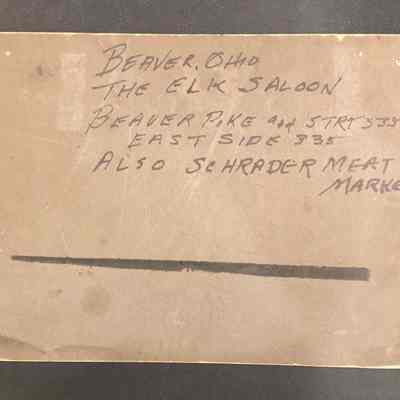 BEAVER, OHIO
THE ELK SALOON
BEAVER PIKE and ST RT 335
EAST SIDE 335
ALSO SCHRADER MEAT
MARKE